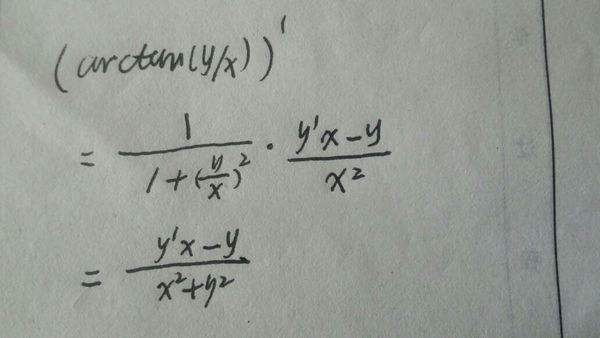 (arctan(y/x))'
= \frac{1}{1+(\frac{y}{x})^2} · \frac{y'x-y}{x^2}
= \frac{y'x-y}{x^2+y^2}